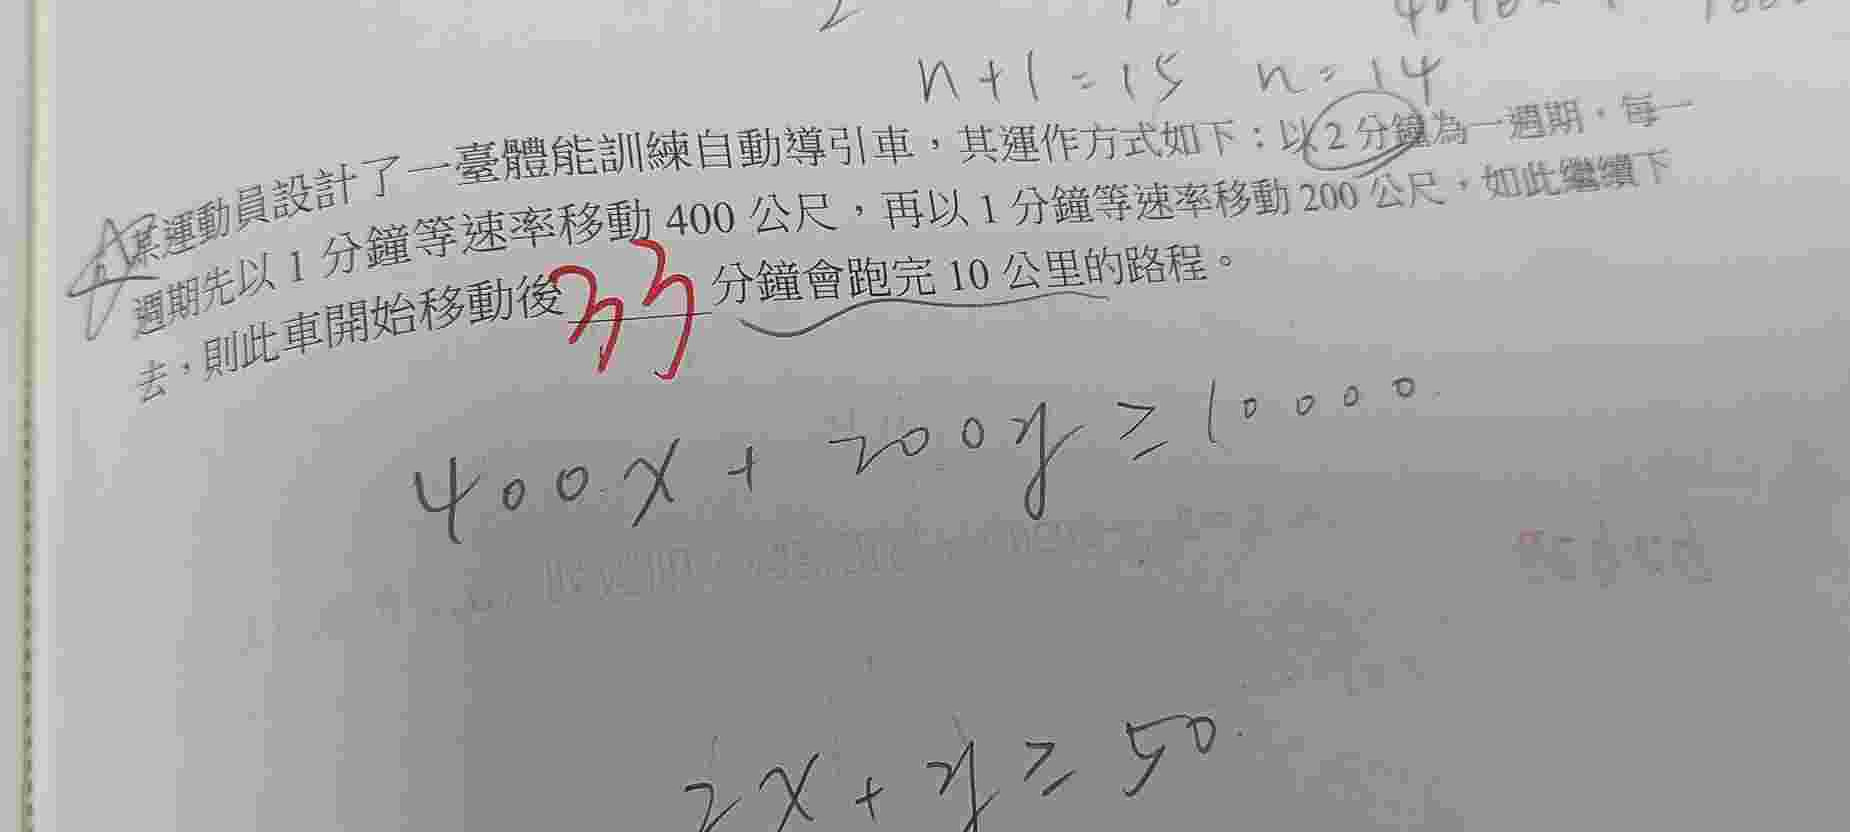 n+1=15 n=14
某運動員設計了一臺體能訓練自動導引車，其運作方式如下：以2分鐘為一週期，每一
週期先以1分鐘等速率移動400公尺，再以1分鐘等速率移動200公尺，如此繼續下
去，則此車開始移動後33分鐘會跑完10公里的路程。
400x+200y≥10000.
2x+y≥50.